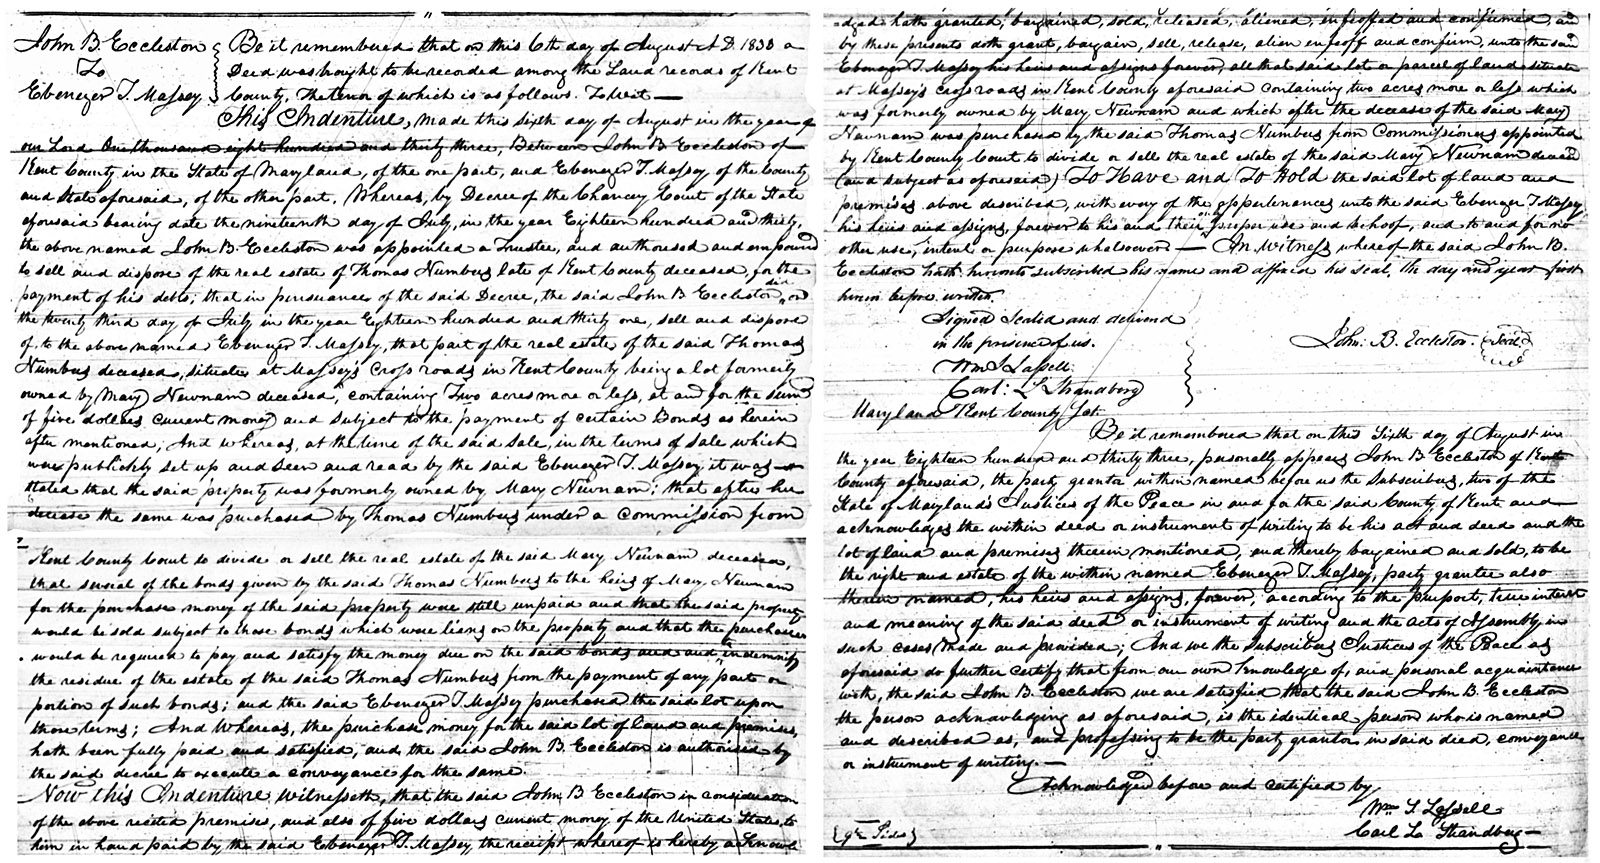 John B. Eccleston
To
Ebenezer T. Massey
Be it remembered that on this 6th day of August A.D. 1833 a
Deed was brought to be recorded among the Land records of Kent
County. The tenor of which is as follows. To Wit —
This Indenture, made this sixth day of August in the year of
our Lord One thousand eight hundred and thirty three, Between John B Eccleston of
Kent County in the State of Maryland, of the one part, and Ebenezer T. Massey, of the County
and State aforesaid, of the other part. Whereas, by Decree of the Chancery Court of the State
aforesaid bearing date the nineteenth day of July, in the year Eighteen hundred and thirty,
the above named John B. Eccleston was appointed a Trustee, and authorised and empowd
to sell and dispose of the real estate of Thomas Numbers late of Kent County deceased, for the
payment of his debts; that in pursuance of the said Decree, the said John B Eccleston did, on
the twenty third day of July in the year Eighteen hundred and thirty one, sell and dispose
of, to the above named Ebenezer T. Massey, that part of the real estate of the said Thomas
Numbers deceased, situate at Massey's Cross roads in Kent County being a lot formerly
owned by Mary Newnam deceased, containing Two acres more or less, at and for the sum
of five dollars current money and subject to the payment of certain Bonds as herein
after mentioned; And whereas, at the time of the said sale, in the terms of sale which
were publickly set up and seen and read by the said Ebenezer T. Massey it was
stated that the said property was formerly owned by Mary Newnam; that after her
decease the same was purchased by Thomas Numbers under a commission from
Kent County Court to divide or sell the real estate of the said Mary Newnam deceased,
that several of the bonds given by the said Thomas Numbers to the heirs of Mary Newnam
for the purchase money of the said property were still unpaid and that the said property
would be sold subject to those bonds which were liens on the property and that the purchaser
would be required to pay and satisfy the money due on the said bonds and and indemnify
the residue of the estate of the said Thomas Numbers from the payment of any part or
portion of such bonds; and the said Ebenezer T. Massey purchased the said lot upon
those terms; And Whereas, the purchase money for the said lot of land and premises,
hath been fully paid and satisfied, and the said John B. Eccleston is authorised by
the said decree to execute a conveyance for the same
Now this Indenture Witnesseth, that the said John B Eccleston in consideration
of the above recited premises, and also of five dollars current money of the United States, to
him in hand paid by the said Ebenezer T. Massey the receipt whereof is hereby acknowl
edged hath granted, bargained, sold, released, aliened, infeoffed and confirmed, and
by these presents doth grant, bargain, sell, release, alien enfeoff and confirm, unto the said
Ebenezer T. Massey his heirs and assigns forever, all that said lot or parcel of land situate
at Massey's Crossroads in Kent County aforesaid containing two acres more or less which
was formerly owned by Mary Newnam and which after the decease of the said Mary
Newnam was purchased by the said Thomas Numbers from Commissioners appointed
by Kent County Court to divide or sell the real estate of the said Mary Newnam decead
(and subject as aforesaid) To Have and To Hold the said lot of land and
premises above described, with every of the appertenances unto the said Ebenezer T Massey,
his heirs and assigns, forever to his and their proper use and behoof, and to and for no
other use, intent or purpose whatsoever — In Witness whereof the said John B.
Eccleston hath hereonto subscribed his name and affixed his seal, the day and year first
herein before written.
Signed Sealed and deliverd
in the presence of us.
Wm S Lassell
Carl: L. Strandberg
John. B. Eccleston. Seal
Maryland Kent County Sct.
Be it remembered that on this Sixth day of August in
the year Eighteen hundred and thirty three, personally appears John B Eccleston of Kent
County aforesaid, the party grantor within named before us the Subscribers, two of the
State of Maryland's Justices of the Peace in and for the said County of Kent and
acknowledges the within deed or instrument of writing to be his act and deed and the
lot of land and premises therein mentioned, and thereby bargained and sold, to be
the right and estate of the within named Ebenezer T. Massey, party grantee also
therein named, his heirs and assigns, forever, according to the purport, true intent
and meaning of the said deed or instrument of writing and the acts of Assembly, in
such cases made and provided; And we the subscribers Justices of the Peace as
aforesaid do further certify that from our own knowledge of, and personal acquaintance
with, the said John B. Eccleston we are satisfied that the said John B. Eccleston
the person acknowledging as aforesaid, is the identical person who is named
and described as, and professing to be the party grantor in said deed, conveyance
or instrument of writing. —
Acknowledged before and certified by
Wm S Lassell
Carl L. Strandberg —